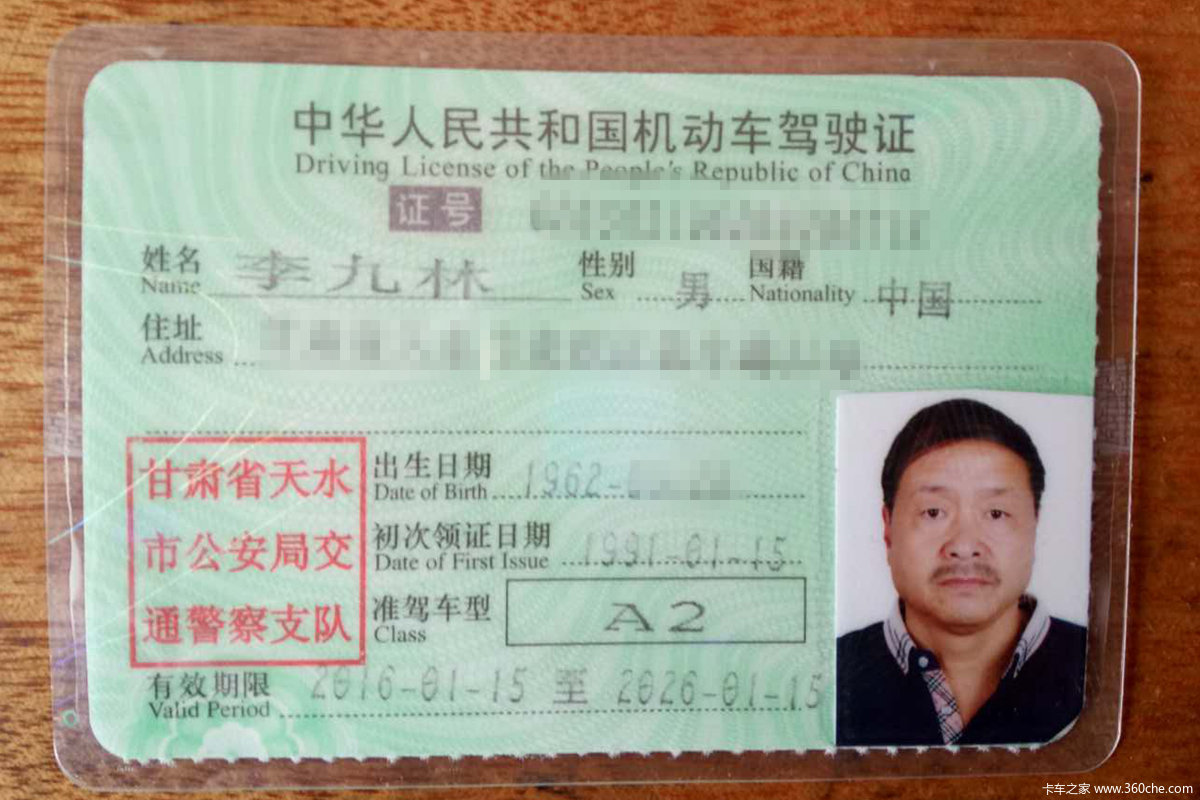 中华人民共和国机动车驾驶证
Driving License of the People's Republic of China
证号
姓名 李九林 性别 男 国籍 中国
Name Sex Nationality
住址
Address
甘肃省天水
市公安局交
通警察支队
出生日期 1962-
Date of Birth
初次领证日期 1991-01-15
Date of First Issue
准驾车型 A2
Class
有效期限 2016-01-15 至 2026-01-15
Valid Period
卡车之家 www.360che.com